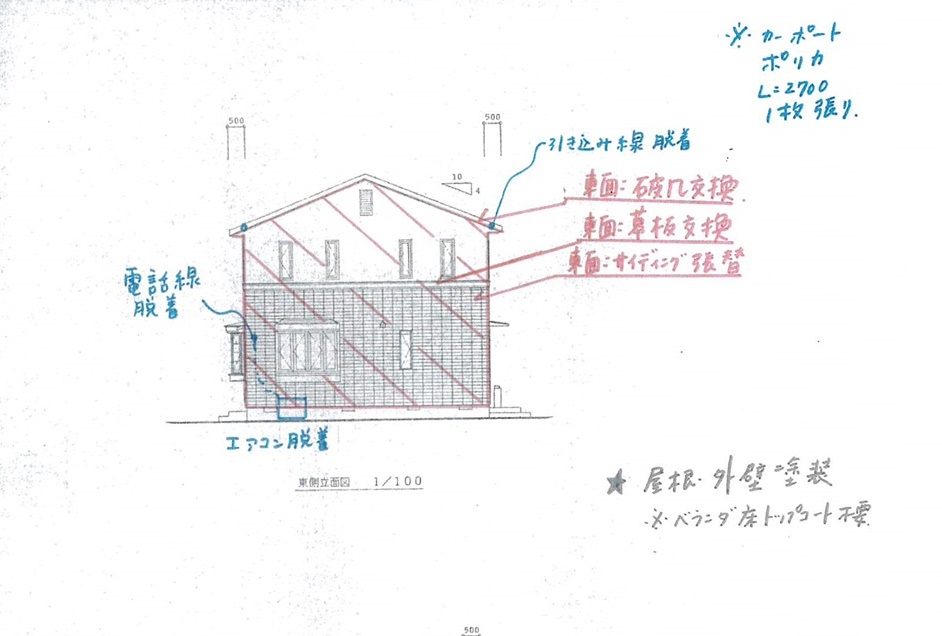 ※ カーポート
ポリカ
L=2700
1枚張り.
500
500
引き込み線 脱着
10
4
東面:破風交換
東面:幕板交換
東面:サイディング張替
電話線
脱着
エアコン脱着
東側立面図 1/100
★ 屋根・外壁塗装
※ベランダ床トップコート不要
500